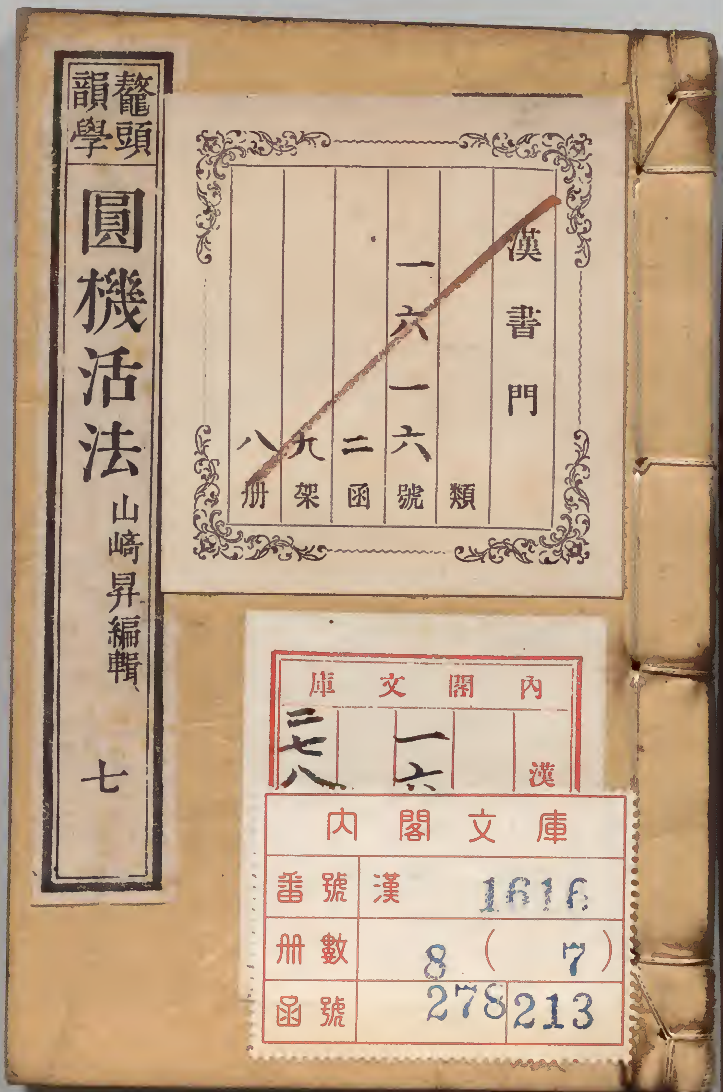 鼇頭
韻學
圓機活法
山崎昇編輯
七
漢書門
類
一六一六號
二函
九架
八册
內閣文庫
漢
一六
三七八
内閣文庫
番號 漢 1616
册數 8 ( 7 )
函號 278 213